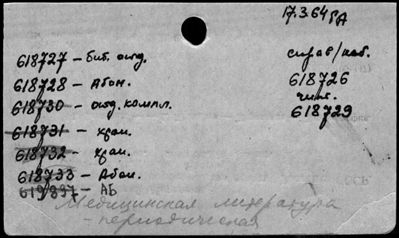 17.3.64
618727 – биб. отд.
618728 – Абон.
618730 – отд. компл.
618731 – хран.
618732 – хран.
618733 – Абон.
619897 – АБ
справ/каб.
618726
чит.
618729
Медицинская литература
– периодическая